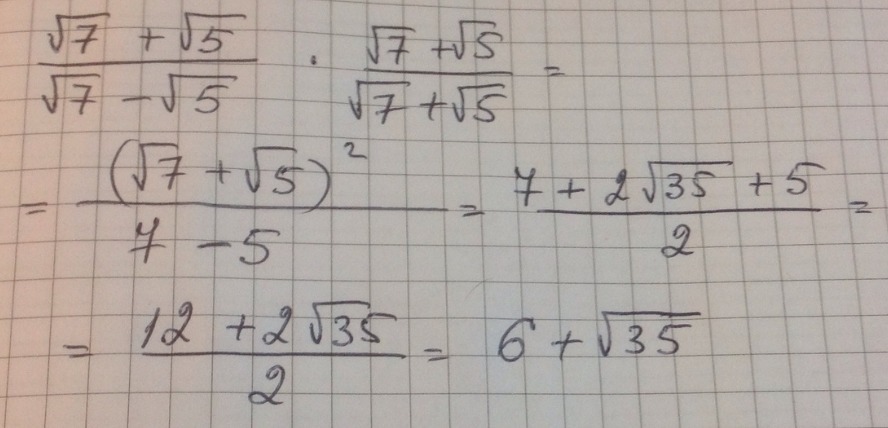 (√7 + √5)/(√7 − √5) · (√7 + √5)/(√7 + √5) =
= (√7 + √5)²/(7 − 5) = (7 + 2√35 + 5)/2 =
= (12 + 2√35)/2 = 6 + √35